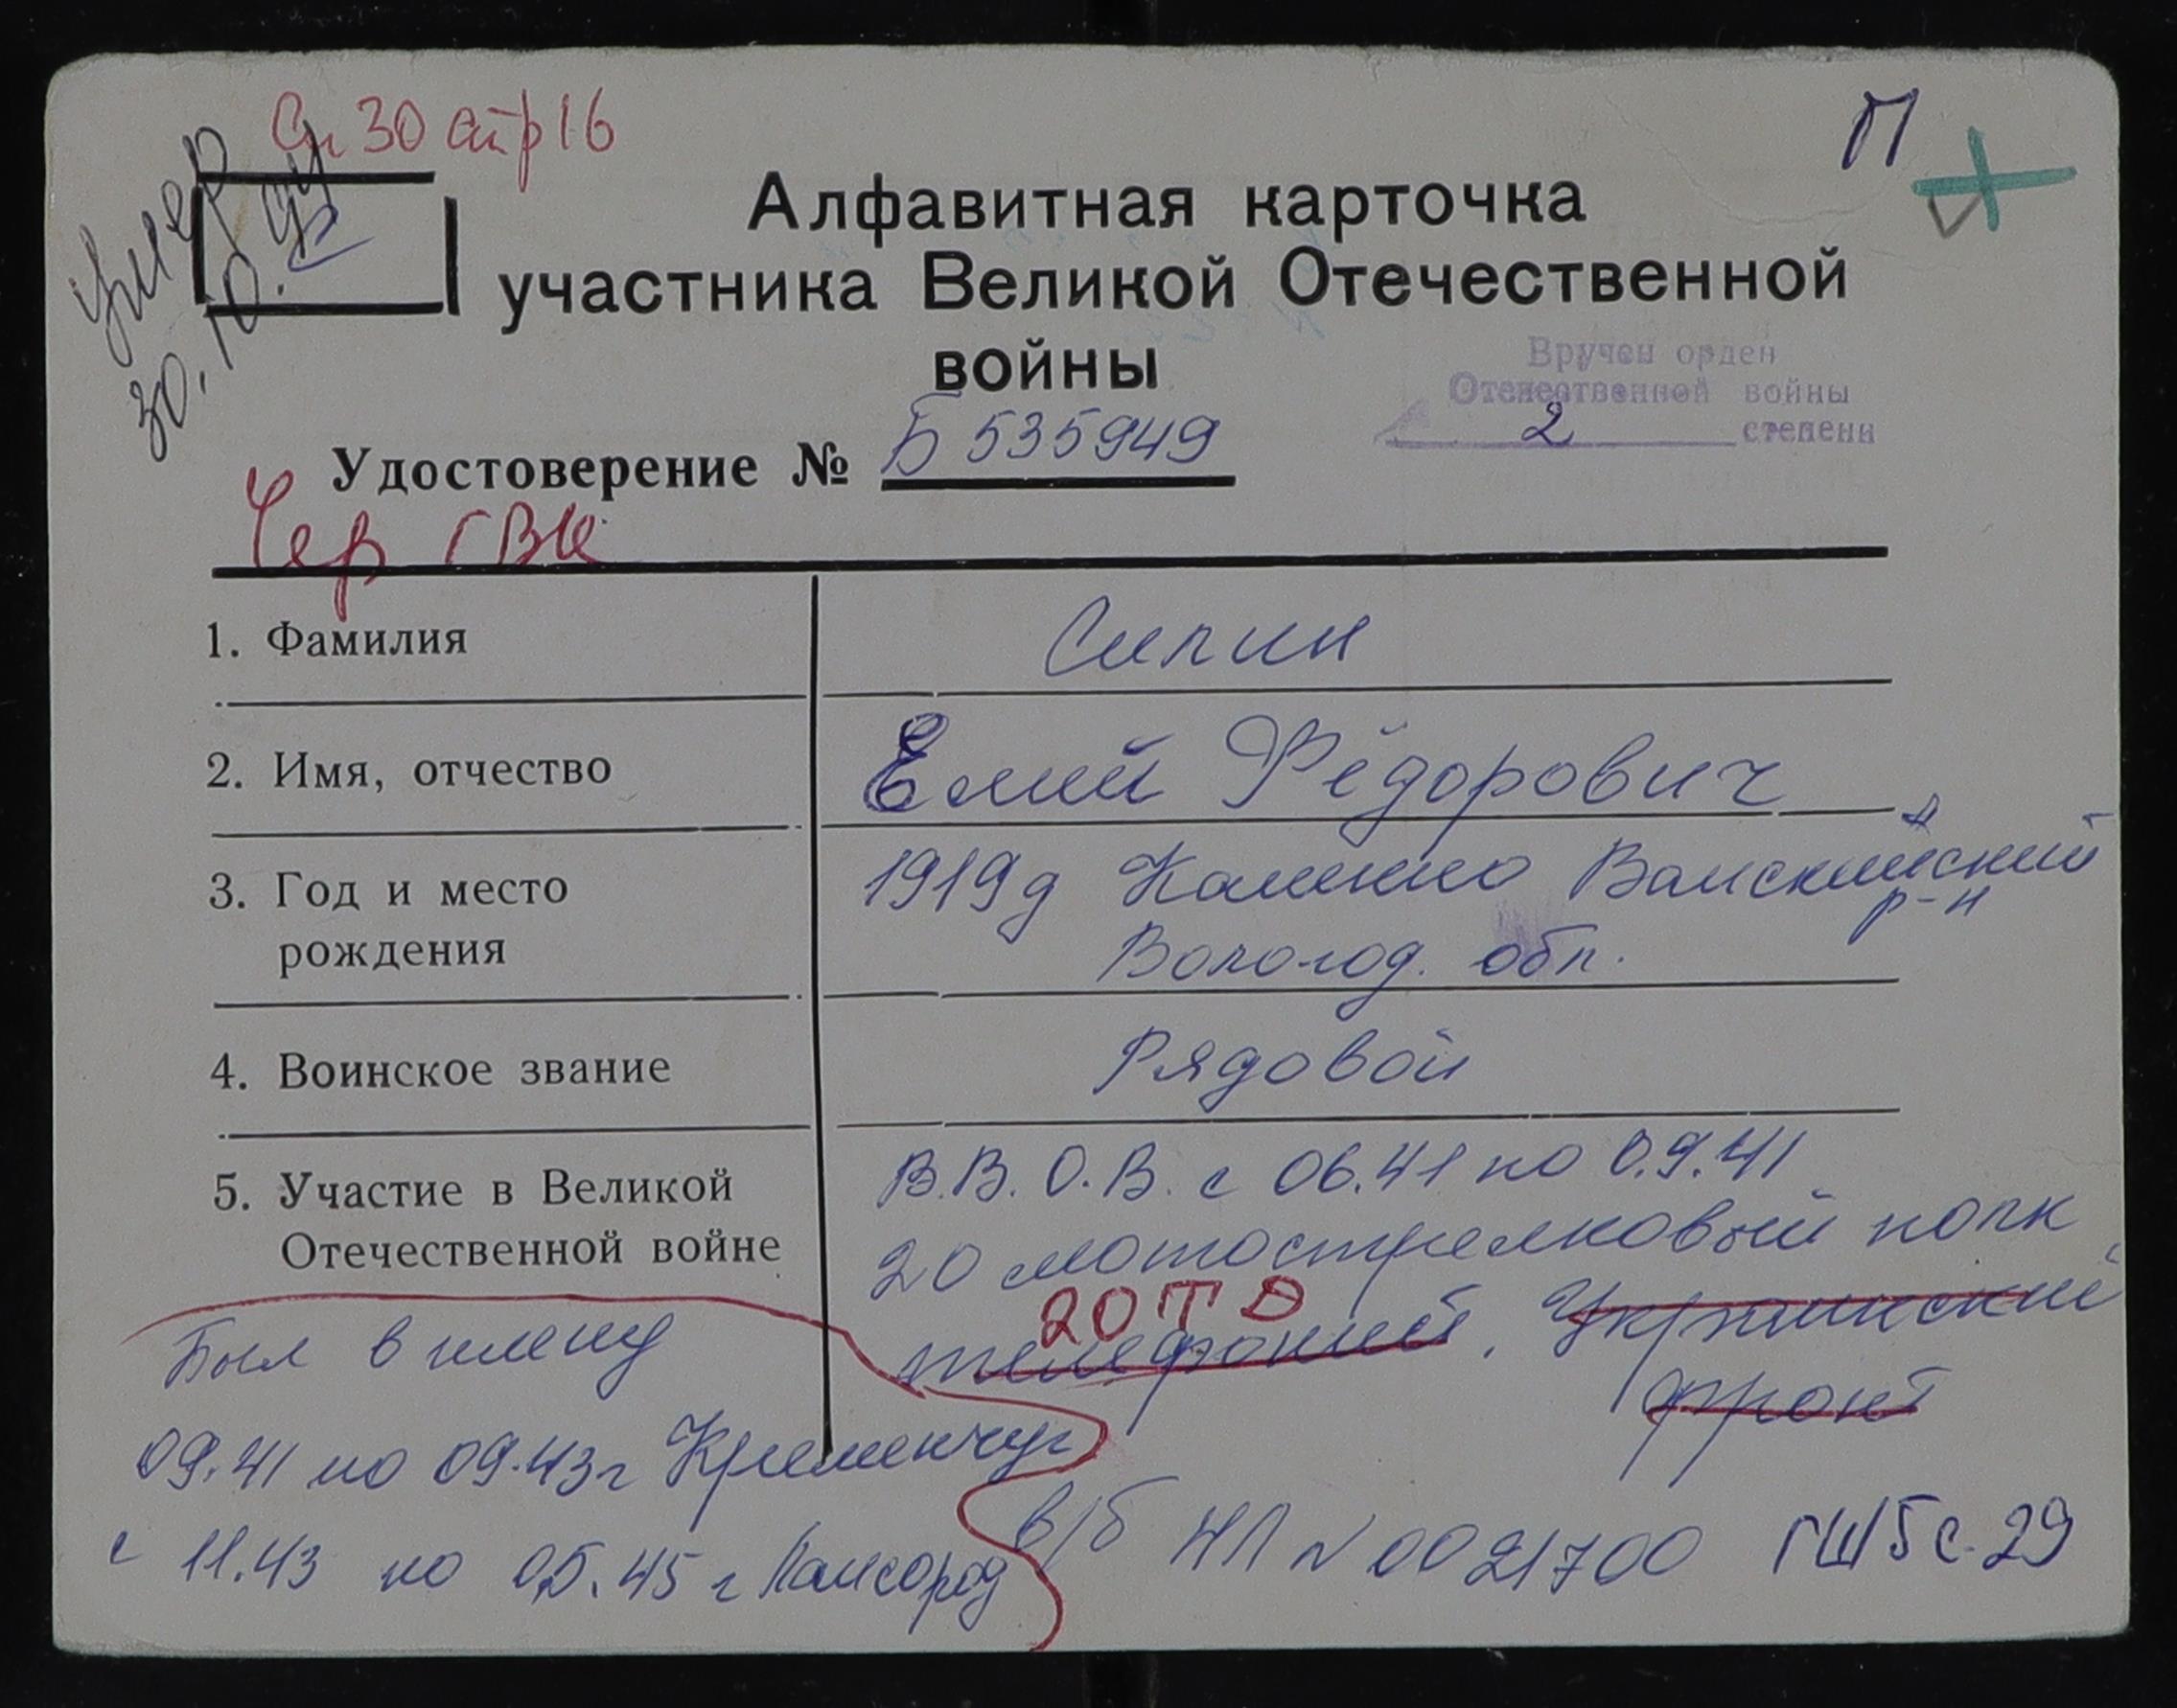 Сп 30 стр 16
П
умер
30.10.94
Алфавитная карточка
участника Великой Отечественной
войны
Вручен орден
Отечественной войны
2 степени
Удостоверение № Б 535949
Чер ГВК
1. Фамилия
Силин
2. Имя, отчество
Елий Фёдорович
3. Год и место
рождения
1919 д
р-н
Вологод. обл.
4. Воинское звание
Рядовой
5. Участие в Великой
Отечественной войне
В.В.О.В. с 06.41 по 0.9.41
20 мотострелковый полк,
20 ТД
телефонист, Украинский
фронт
Был в плену
09.41 по 09.43 г Кременчуг
с 11.43 по 05.45 г
в/б НЛ N 0021700 ГШ 5 с. 29